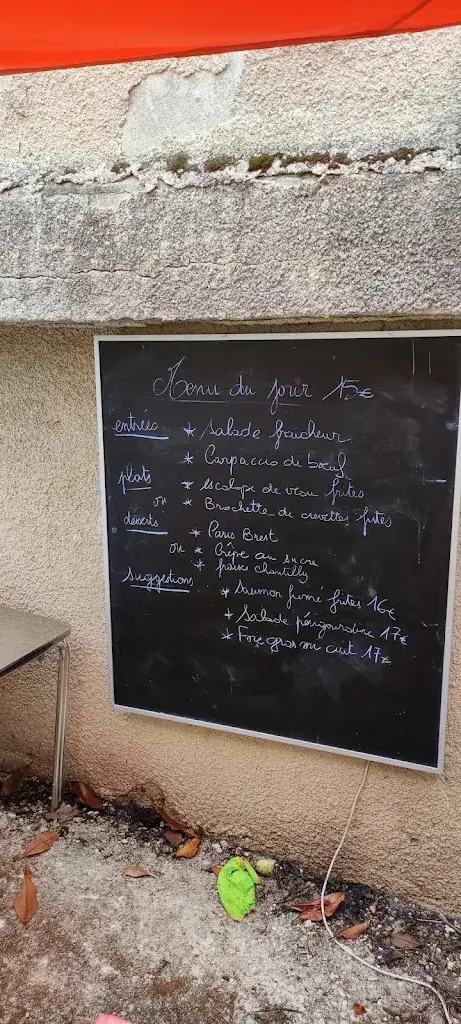 Menu du jour 15€
entrées * Salade fraicheur
* Carpaccio de bœuf
plats * escalope de veau frites
ou * Brochette de crevettes frites
désserts * Paris Brest
ou * Crêpe au sucre
* fraises chantilly
suggestions * Saumon fumé frites 16€
* Salade périgourdine 17€
* Foie gras mi cuit 17€